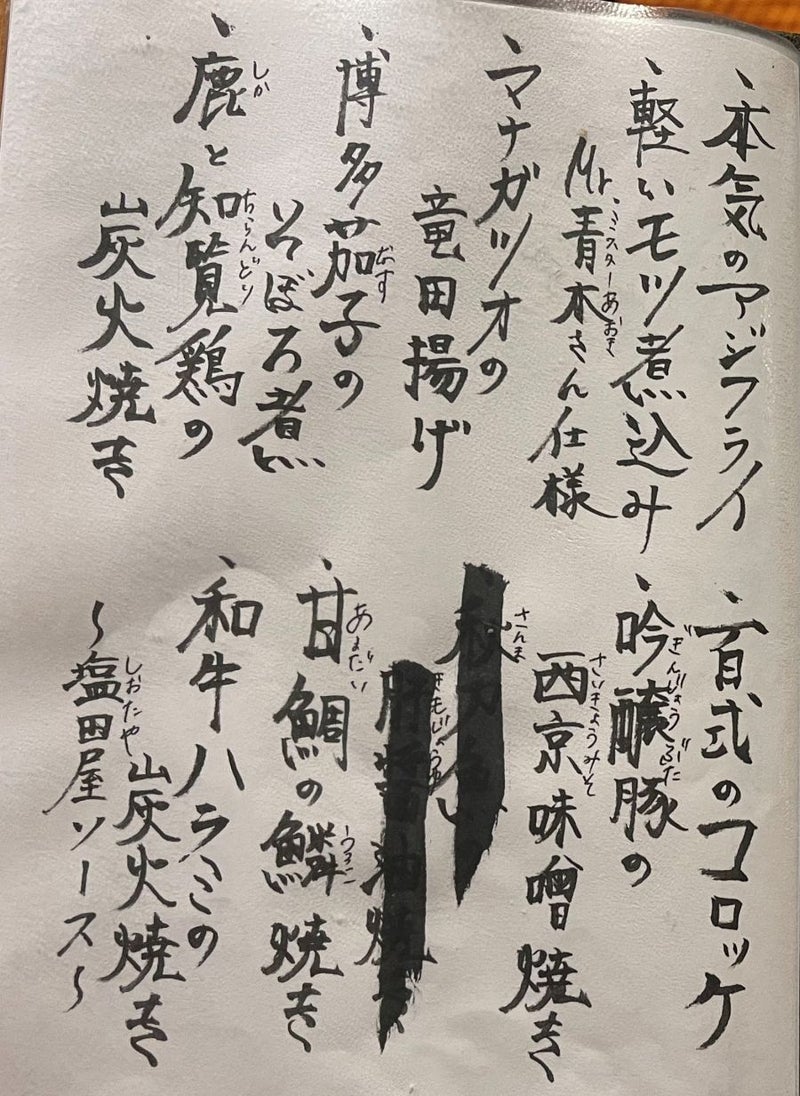 、本気のアジフライ
、軽いモツ煮込み
Mr.青木さん仕様
ミスターあおき
、マナガツオの
竜田揚げ
、博多茄子の
なす
そぼろ煮
、鹿と知覧鶏の
しか
ちらんどり
炭火焼き
、百式のコロッケ
、吟醸豚の
ぎんじょうぶた
西京味噌焼き
さいきょうみそ
さんま
肝醤油焼き
きもじょうゆ
、甘鯛の鱗焼き
あまだい
うろこ
、和牛ハラミの
炭火焼き
〜塩田屋ソース〜
しおたや